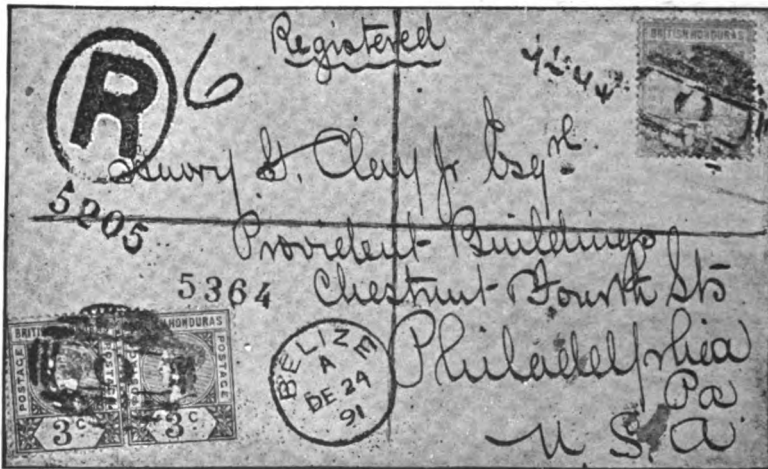 Registered
R 6
BRITISH HONDURAS
Henry G. Clay Jr Esqre
5205
Provident Buildings
5364
Chestnut Fourth Sts
Philadelphia
Pa
U S A
BELIZE
A
DE 24
91
BRITISH HONDURAS
POSTAGE POSTAGE POSTAGE
3c 3c